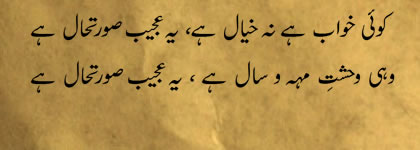 کوئی خواب ہے نہ خیال ہے، یہ عجیب صورتحال ہے
وہی وحشتِ مہہ و سال ہے ، یہ عجیب صورتحال ہے